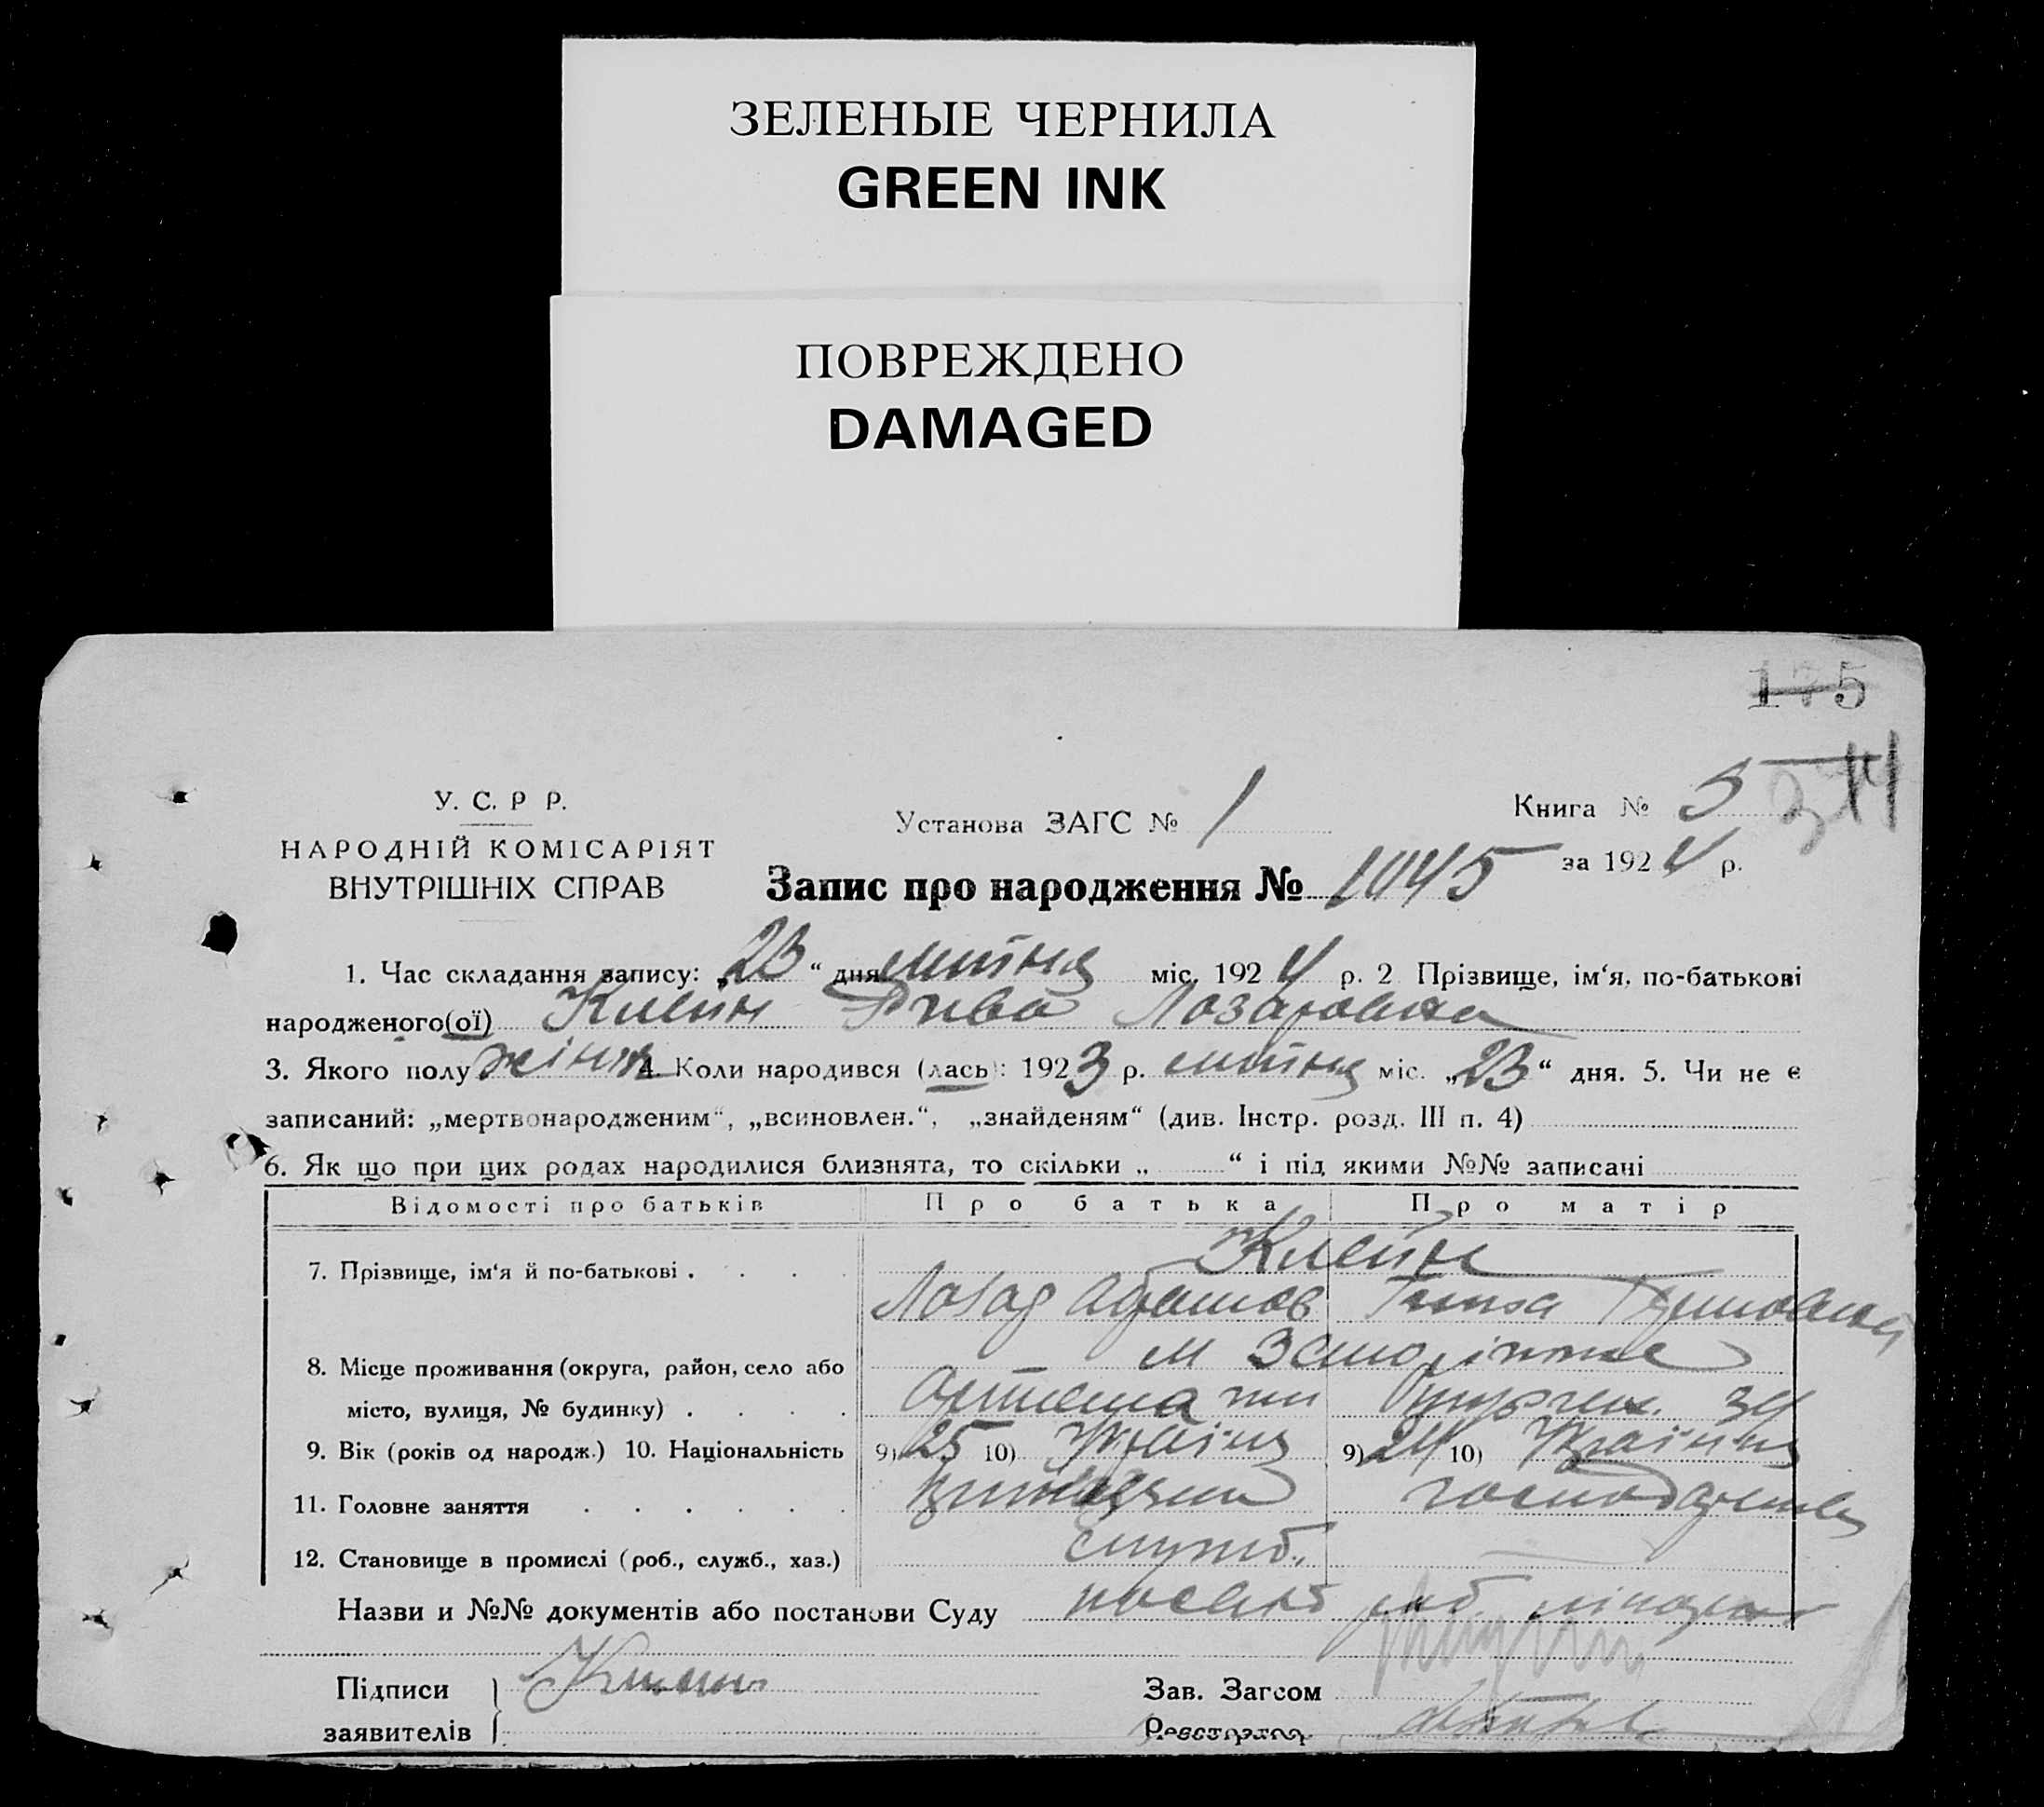 ЗЕЛЕНЫЕ ЧЕРНИЛА
GREEN INK
ПОВРЕЖДЕНО
DAMAGED
175
314
У. С. Р Р.
НАРОДНІЙ КОМІСАРІЯТ
ВНУТРІШНІХ СПРАВ
Установа ЗАГС № 1
Книга № 5
за 1924 р.
Запис про народження № 1045
1. Час складання запису: „23“ дня липня міс. 1924 р. 2 Прізвище, ім‘я, по-батькові
народженого(ої) Клейн Рива Лазаровна
3. Якого полу жіноч 4. Коли народився (лась): 1923 р. липня міс. „23“ дня. 5. Чи не є
записаний: „мертвонародженим“, „всиновлен.“, „знайденям“ (див. Інстр. розд. III п. 4)
6. Як що при цих родах народилися близнята, то скільки „ “ і під якими №№ записані
Відомості про батьків Про батька Про матір
7. Прізвище, ім‘я й по-батькові . . . . Клейн
Лазар Абрамов
8. Місце проживання (округа, район, село або м Запоріжже
місто, вулиця, № будинку) . . . . 34
9. Вік (років од народж.) 10. Національність 9) 25 10) 9) 24 10)
11. Головне заняття . . . . . .
12. Становище в промислі (роб., служб., хаз.) служб.
Назви и №№ документів або постанови Суду
Підписи Клейн Зав. Загсом
заявителів Реєстратор